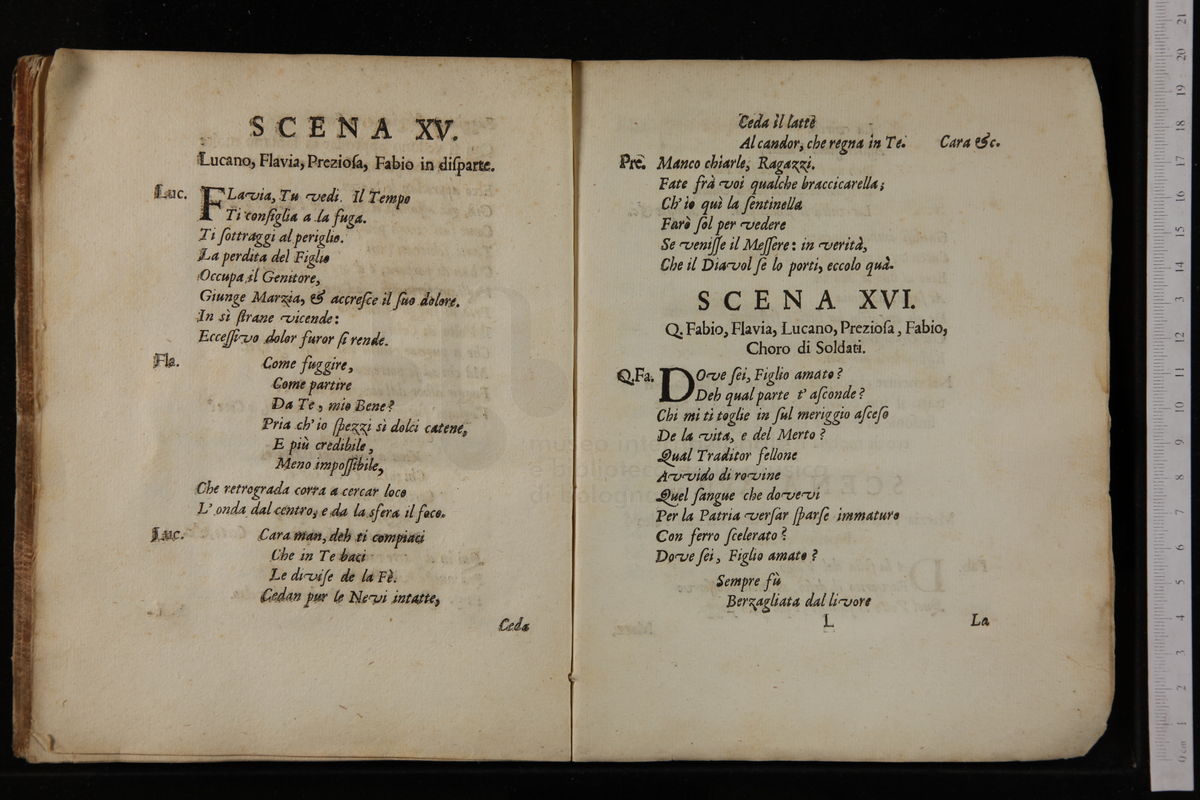 SCENA XV.
Lucano, Flavia, Prezioſa, Fabio in diſparte.
Luc. FLavia, Tu vedi. Il Tempo
Ti conſiglia a la fuga.
Ti ſottraggi al periglio.
La perdita del Figlio
Occupa il Genitore,
Giunge Marzia, & accreſce il ſuo dolore.
In sì ſtrane vicende:
Ecceſſivo dolor furor ſi rende.
Fla. Come fuggire,
Come partire
Da Te, mio Bene?
Pria ch'io ſpezzi sì dolci catene,
E più credibile,
Meno impoſſibile,
Che retrograda corra a cercar loco
L'onda dal centro, e da la sfera il foco.
Luc. Cara man, deh ti compiaci
Che in Te baci
Le diviſe de la Fè.
Cedan pur le Nevi intatte,
Ceda
Ceda il latte
Al candor, che regna in Te. Cara &c.
Pre. Manco chiarle, Ragazzi.
Fate frà voi qualche braccicarella;
Ch'io quì la ſentinella
Farò ſol per vedere
Se veniſſe il Meſſere: in verità,
Che il Diavol ſe lo porti, eccolo quà.
SCENA XVI.
Q. Fabio, Flavia, Lucano, Prezioſa, Fabio,
Choro di Soldati.
Q.Fa. DOve ſei, Figlio amato?
Deh qual parte t'aſconde?
Chi mi ti toglie in ſul meriggio aſceſo
De la vita, e del Merto?
Qual Traditor fellone
Avvido di rovine
Quel ſangue che dovevi
Per la Patria verſar ſparſe immaturo
Con ferro ſcelerato?
Dove ſei, Figlio amato?
Sempre fù
Berzagliata dal livore
L
La
museo inte
bibliotec
di bologna
0 cm 1 2 3 4 5 6 7 8 9 10 11 12 13 14 15 16 17 18 19 20 21